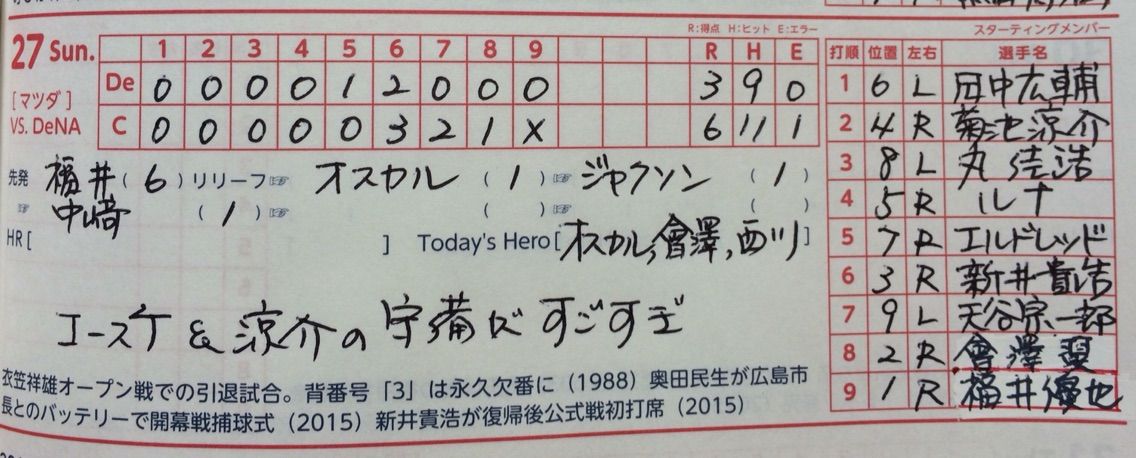 R:得点 H:ヒット E:エラー
スターティングメンバー
27 Sun. 1 2 3 4 5 6 7 8 9 R H E
[マツダ] De 0 0 0 0 1 2 0 0 0 3 9 0
VS. DeNA C 0 0 0 0 0 3 2 1 X 6 11 1
先発 福井(6)リリーフ☞ オスカル (1)☞ ジャクソン (1)
☞ 中﨑 (1)☞ ( )☞ ( )
HR[ ] Today's Hero[オスカル,會澤,西川]
コースケ & 涼介の守備がすごすぎ
衣笠祥雄オープン戦での引退試合。背番号「3」は永久欠番に(1988)奥田民生が広島市
長とのバッテリーで開幕戦捕球式(2015)新井貴浩が復帰後公式戦初打席(2015)
打順 位置 左右 選手名
1 6 L 田中広輔
2 4 R 菊池涼介
3 8 L 丸 佳浩
4 5 R ルナ
5 7 R エルドレッド
6 3 R 新井貴浩
7 9 L 天谷宗一郎
8 2 R 會澤 翼
9 1 R 福井優也